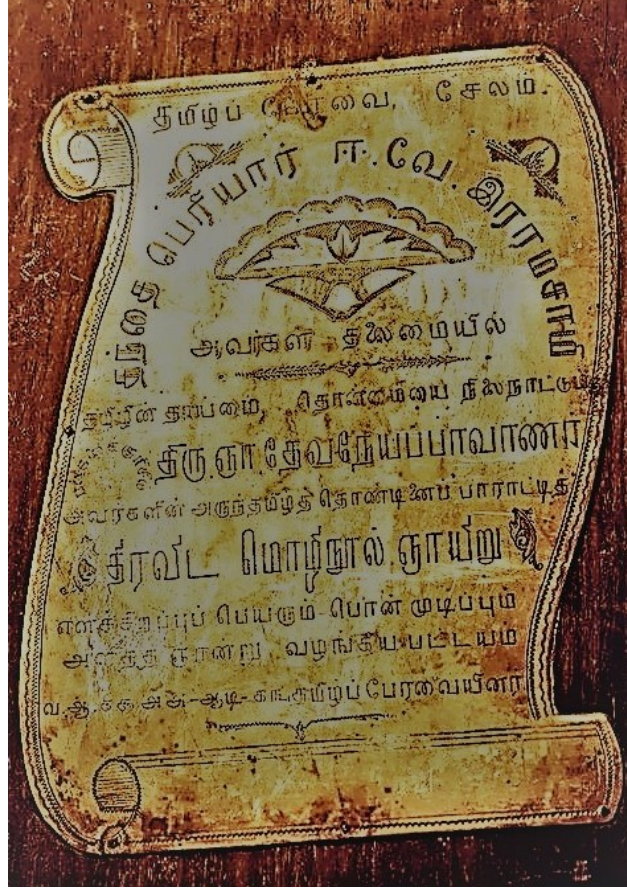 தமிழ்ப் பேரவை, சேலம்.
தந்தை பெரியார் ஈ. வே. இராமசாமி
அவர்கள் தலைமையில்
தமிழின் தாய்மை, தொன்மையை நிலைநாட்டும்
திரு. ஞா. தேவநேயப்பாவாணர்
அவர்களின் அருந்தமிழ்த் தொண்டினைப் பாராட்டித்
திரவிட மொழிநூல் ஞாயிறு
எனச்சிறப்புப் பெயரும் பொன் முடிப்பும்
அளித்த ஞான்று வழங்கிய பட்டயம்